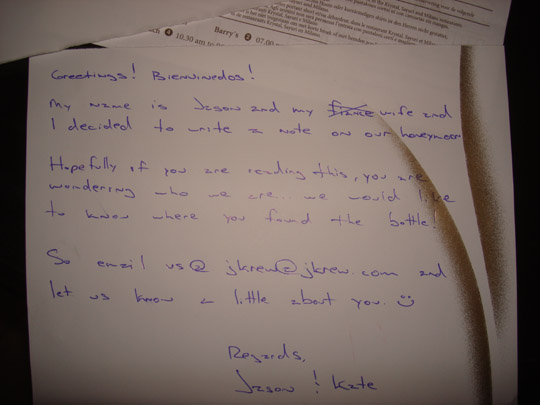 Barry's 2 07.00
4 10.30 am to
Greetings! Bienvinedos!
My name is Jason and my fiance wife and
I decided to write a note on our honeymoon
Hopefully if you are reading this, you are
wondering who we are... we would like
to know where you found the bottle!
So email us@ jkrew@jkrew.com and
let us know a little about you. :)
Regards,
Jason ! Kate